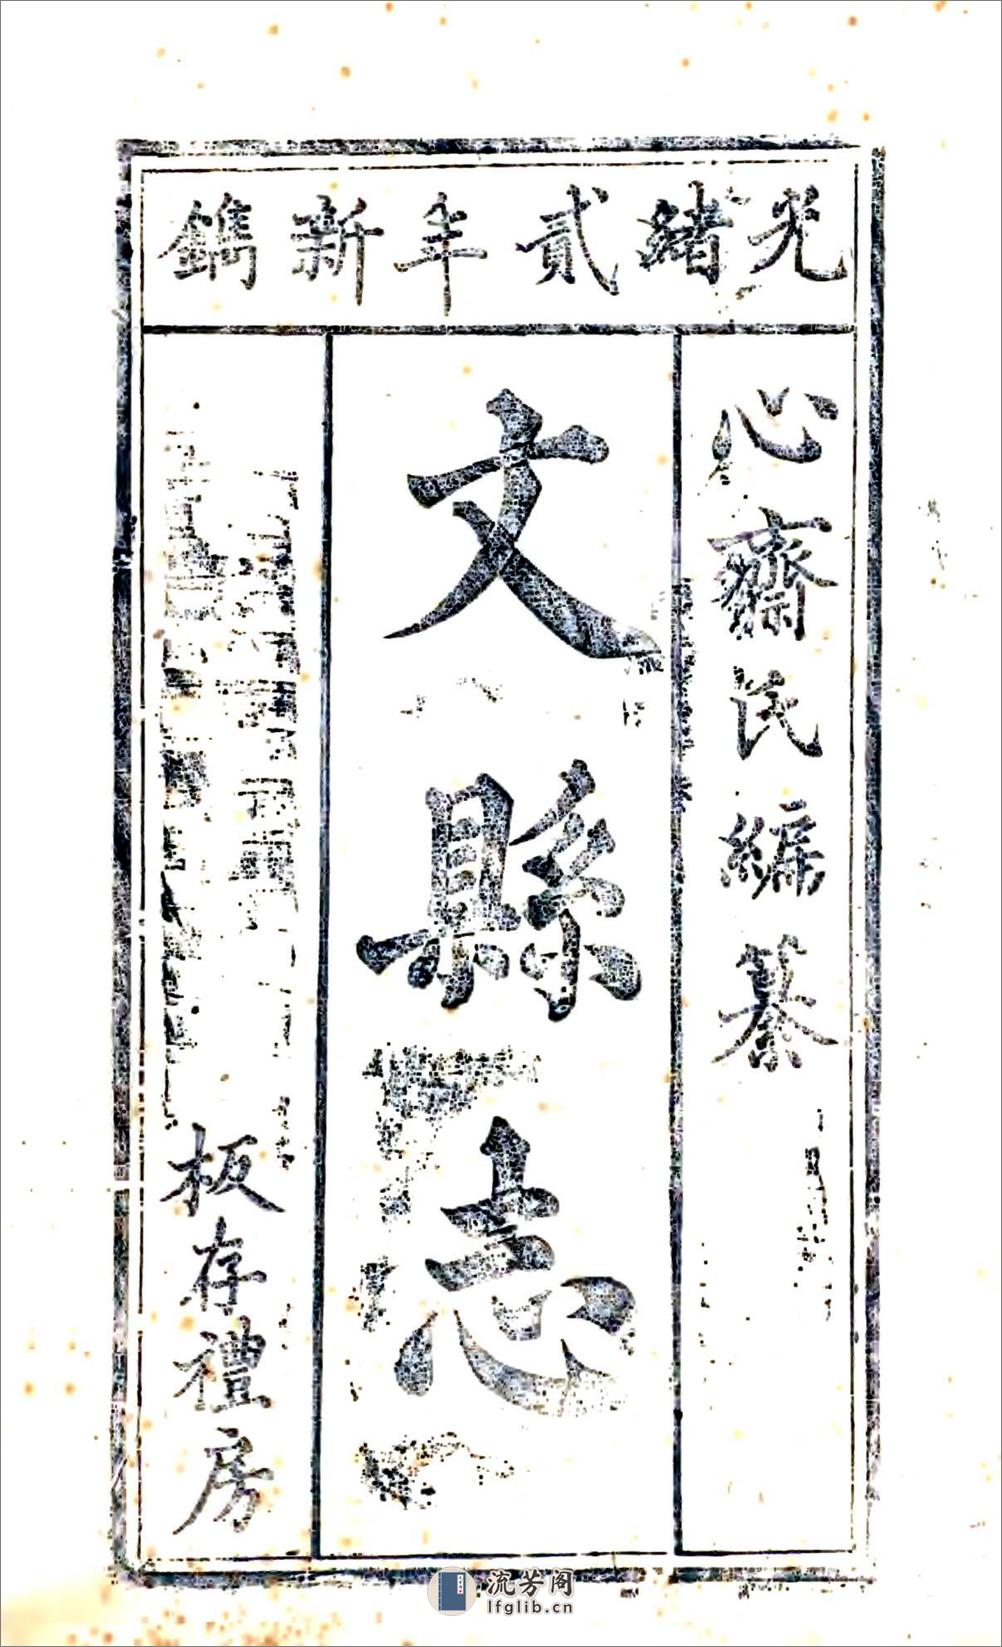 光緒貳年新鐫
心齋氏編纂
文縣志
板存禮房
流芳阁
lfglib.cn